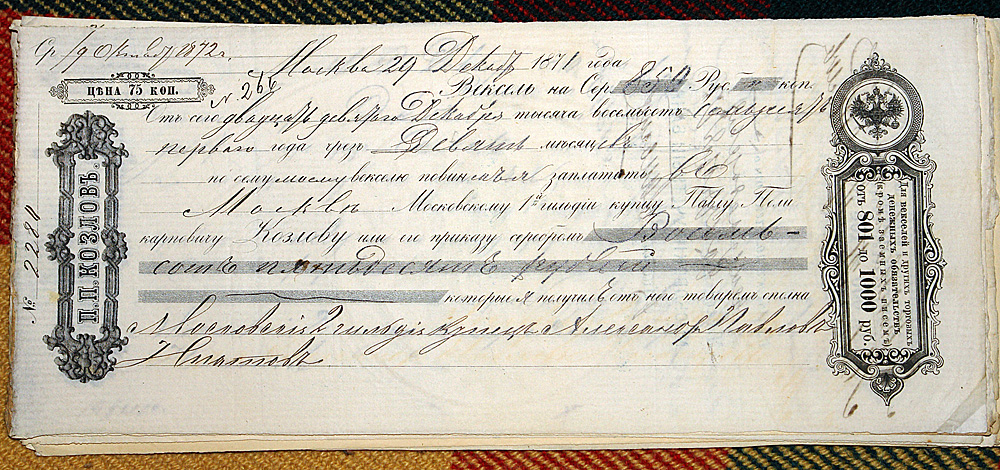 Ср /9 Октяб 1872 г.
Москва 29 Декаб 1871 года
ЦѢНА 75 КОП.
N. 266
Вексель на Сер. 850 Руб. коп.
Отъ сего двадцать девятаго Декабря тысяча восемьсотъ семьдесятъ
перваго года чрезъ Девять мѣсяцевъ
по сему моему векселю повиненъ я заплатить въ
Москвѣ Московскому 1й гильдіи купцу Павлу Поли
карповичу Козлову или его приказу серебромъ Восемь-
сотъ пятьдесятъ рублей
которые я получилъ отъ него товаромъ сполна
Московскій 2 гильдіи купецъ Александр Павловъ
Игнатовъ
П. П. КОЗЛОВЪ.
№ 2280
Для векселей и другихъ торговыхъ
денежныхъ обязательствъ
(кромѣ заемныхъ писемъ)
отъ 801 до 1000 руб.